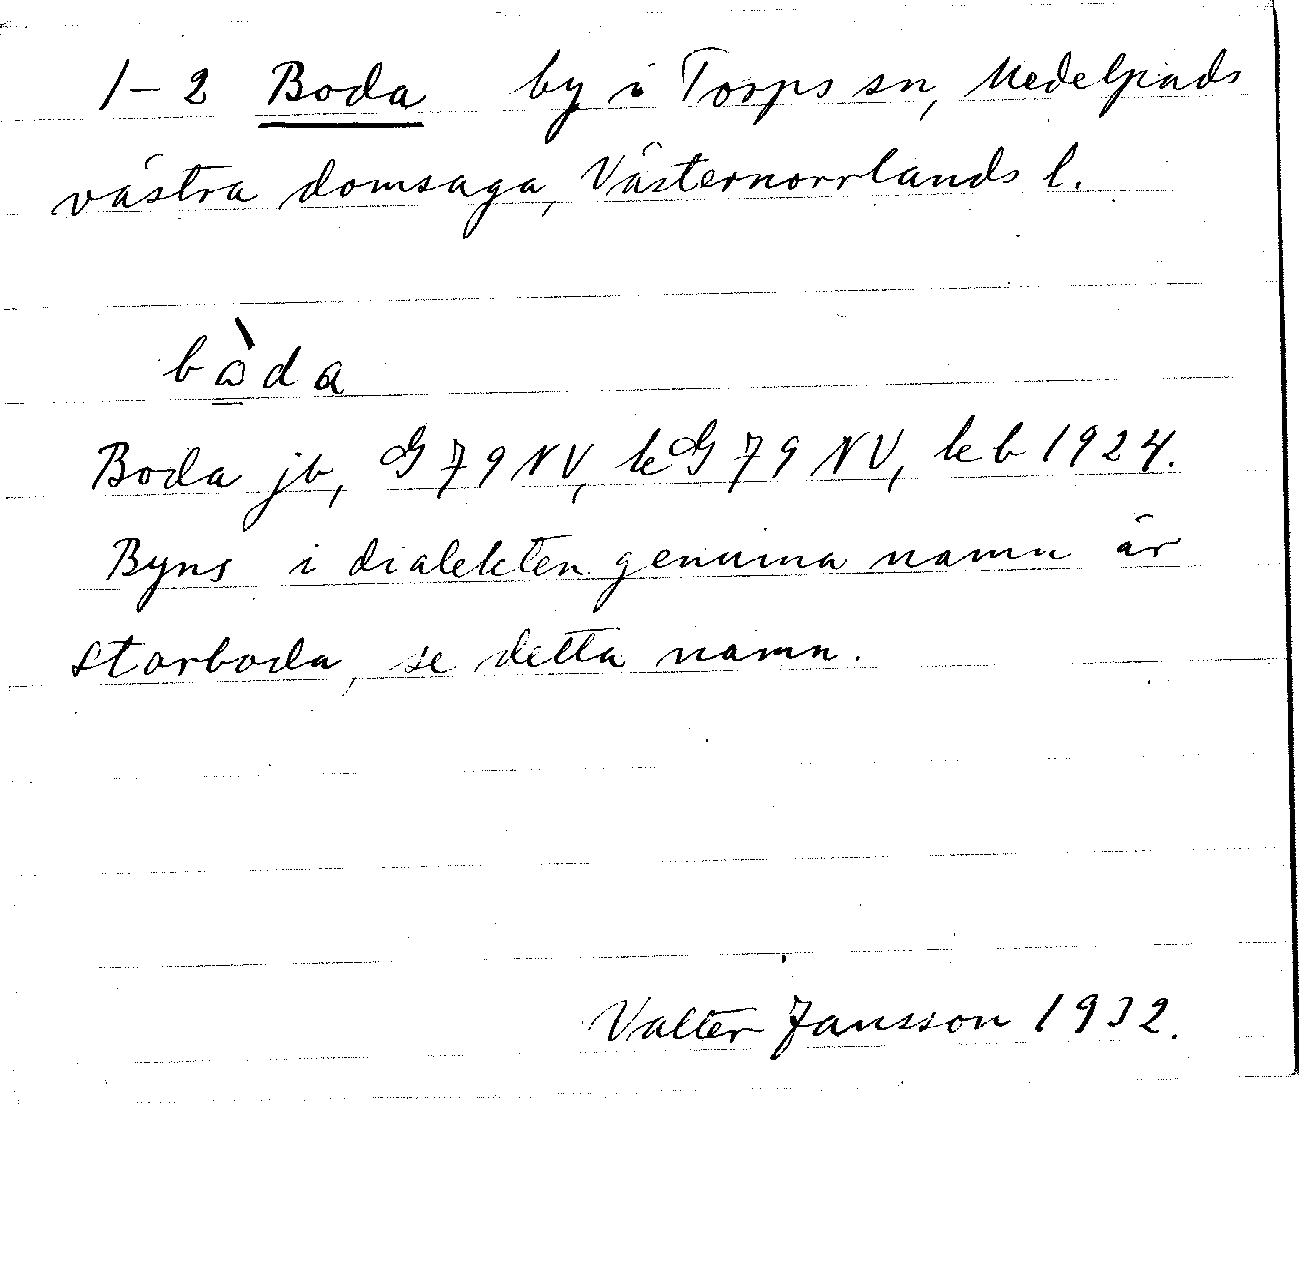 1–2 Boda by i Torps sn, Medelpads
västra domsaga, Västernorrlands l.
bòda
Boda jb, G 79 NV, kG 79 NV, kb 1924.
Byns i dialekten genuina namn är
Storboda, se detta namn.
Valter Jansson 1932.